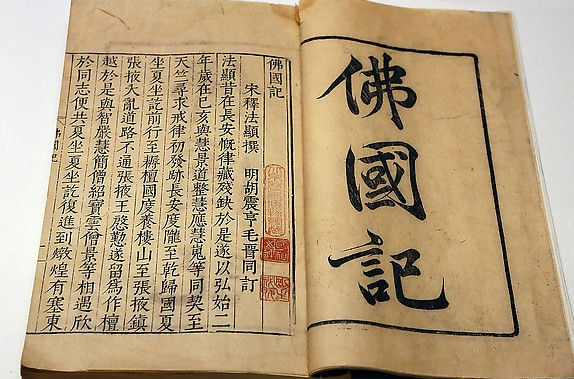 佛國記
佛國記
宋釋法顯撰 明胡震亨毛晉同訂
法顯昔在長安慨律藏殘缺於是遂以弘始二
年歲在巳亥與慧景道整慧應慧嵬等同契至
天竺尋求戒律初發跡長安度隴至乾歸國夏
坐夏坐訖前行至耨檀國度養樓山至張掖鎮
張掖大亂道路不通張掖王慇懃遂留爲作檀
越於是與智嚴慧簡僧紹寶雲僧景等相遇欣
於同志便共夏坐夏坐訖復進到燉煌有塞東
佛國記